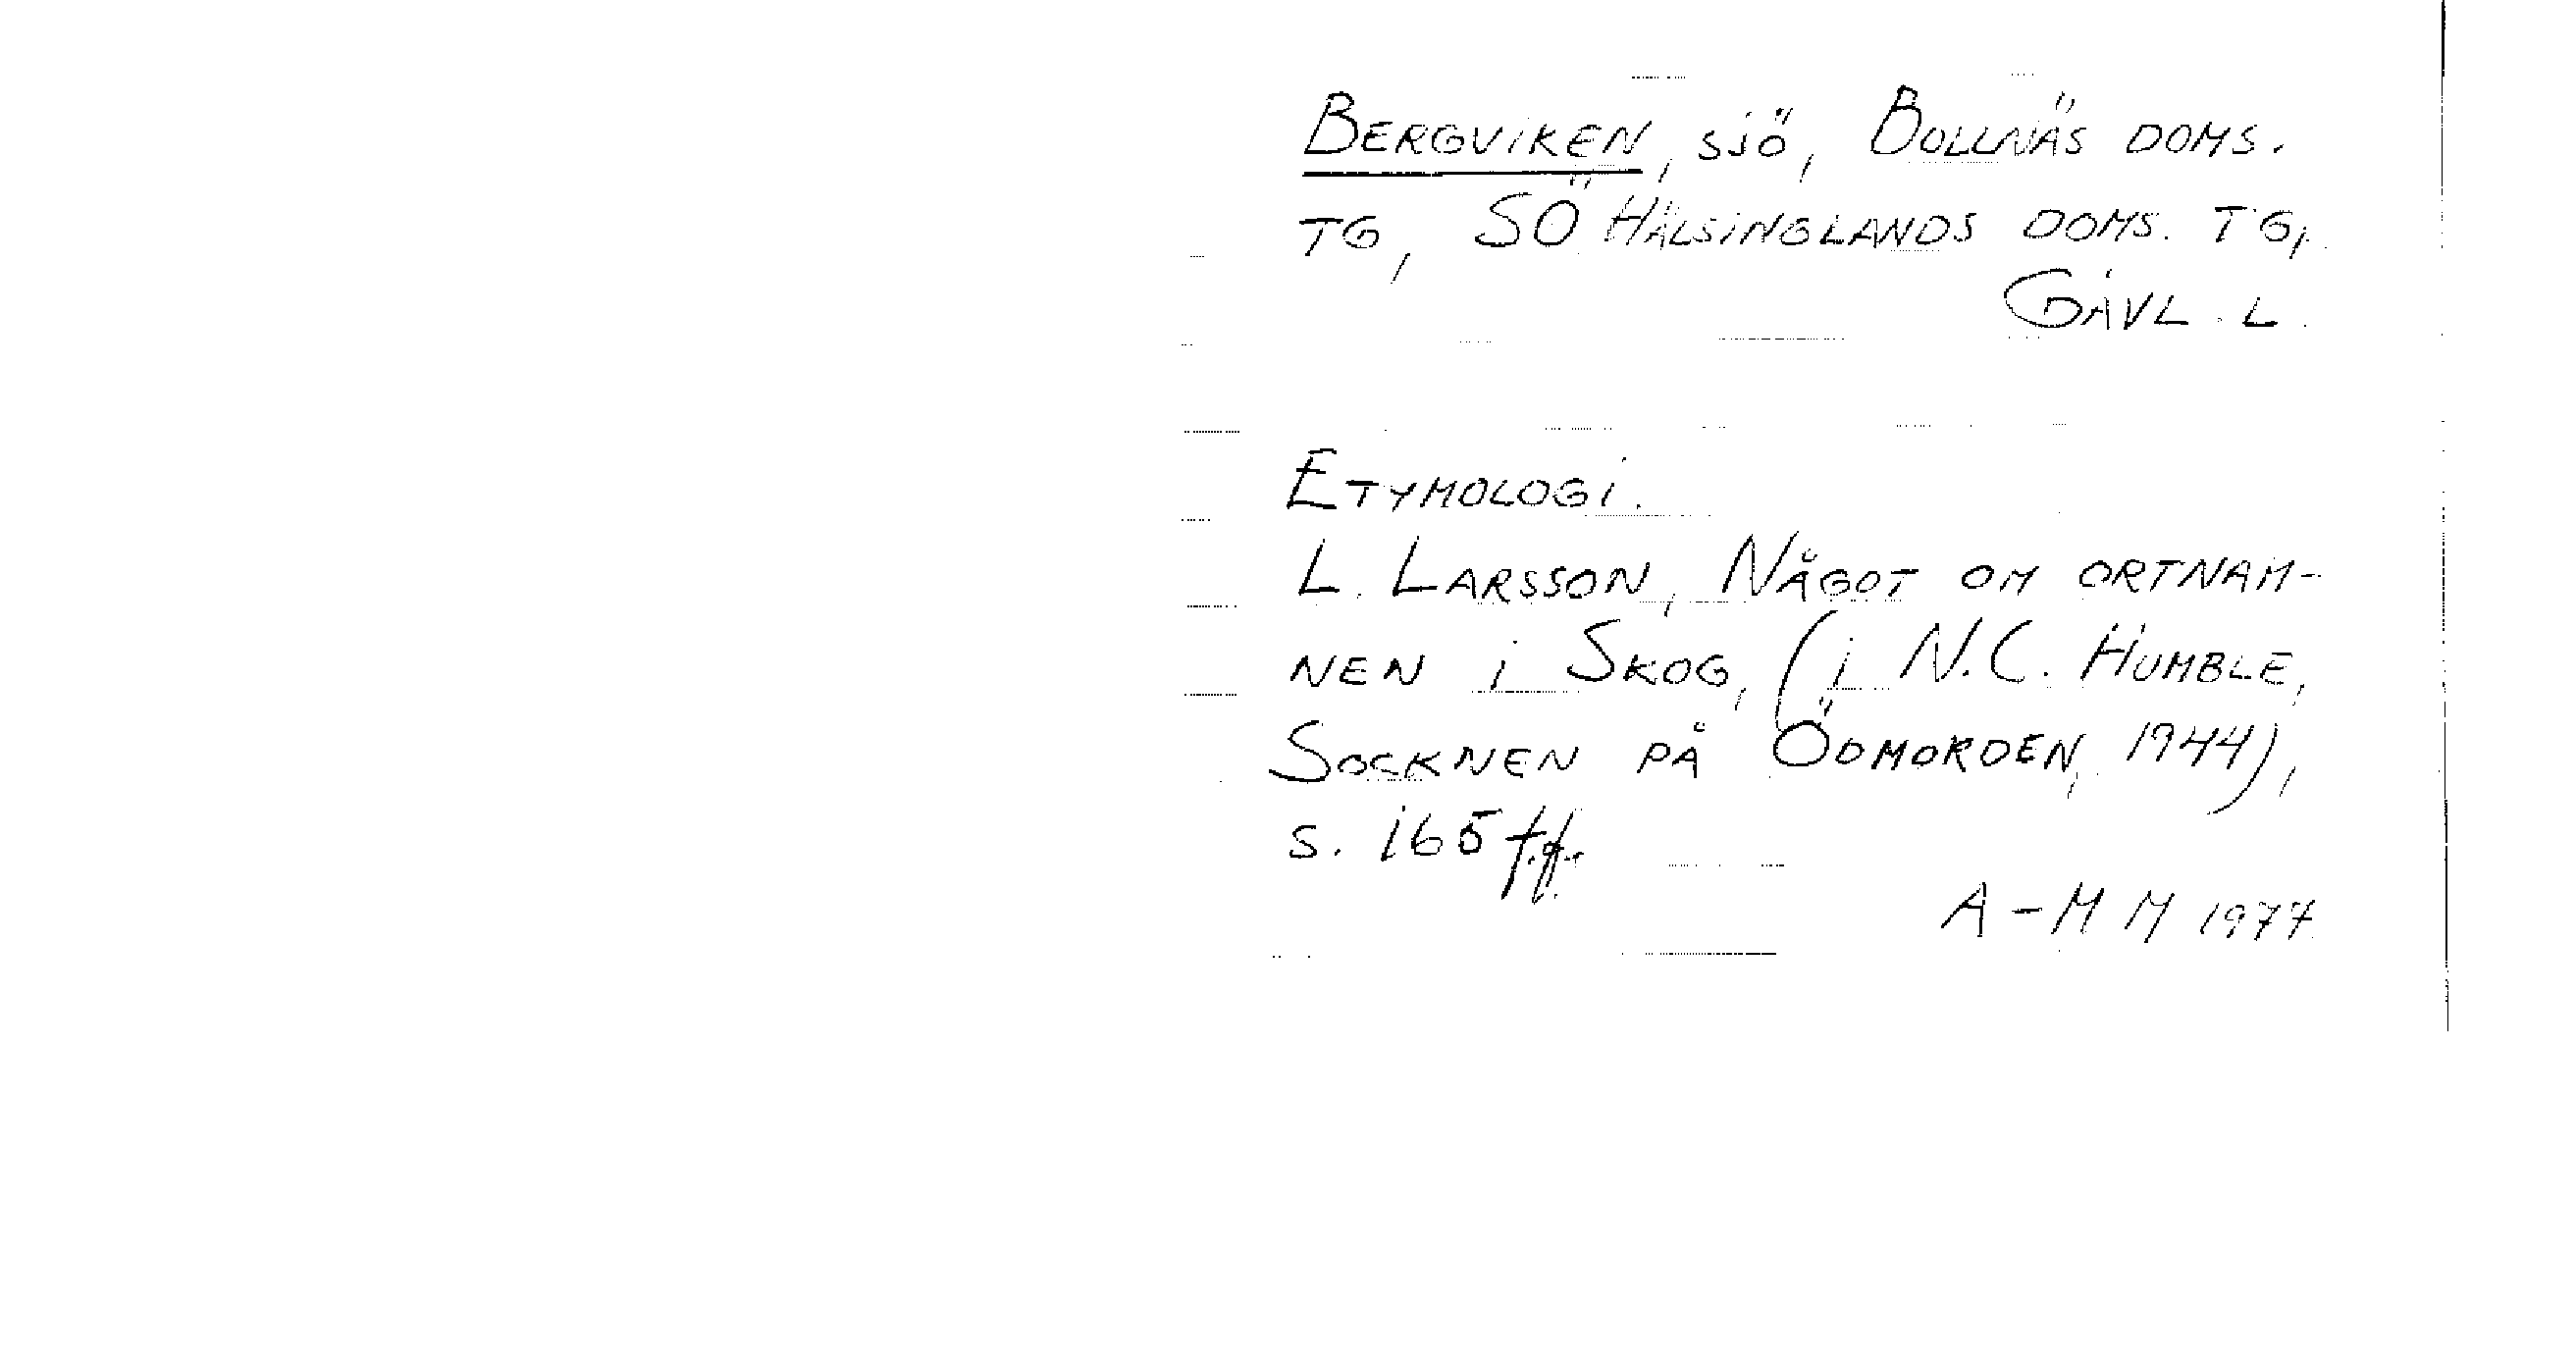 BERGVIKEN, SJÖ, BOLLNÄS DOMS.
TG, SÖ HÄLSINGLANDS DOMS. TG,
GÄVL. L.
ETYMOLOGI.
L. LARSSON, NÅGOT OM ORTNAM-
NEN I SKOG, (I N.C. HUMBLE,
SOCKNEN PÅ ÖDMORDEN, 1944),
S. 165 ff.
A-M M 1977